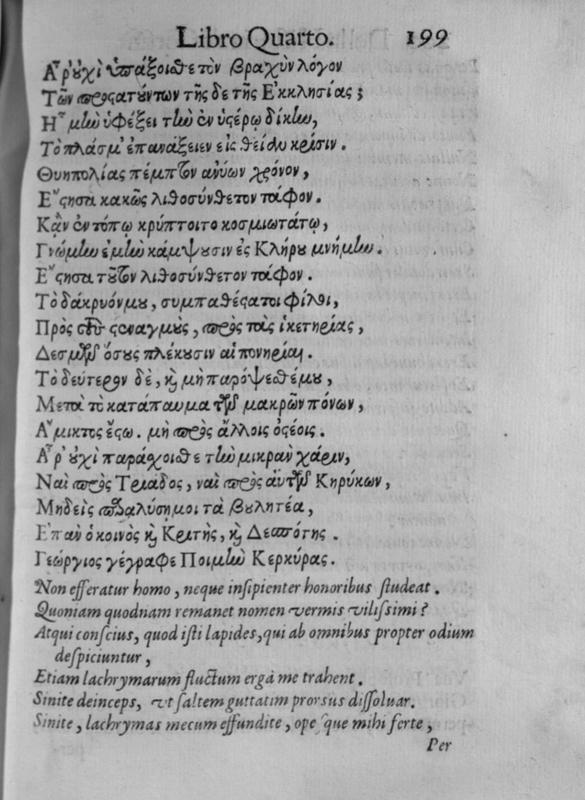 Libro Quarto. 199
Ἆρ' οὐχὶ ὑπάξοισθε τὸν βραχὺν λόγον
Τῶν προστατούντων τῆς δε τῆς Εκκλησίας;
Ἦ μὴν ὑφέξει τὴν ἐν ὑστέρῳ δίκην,
Τὸ πλάσμ' ἐπανάξειεν εἰς θείου κρίσιν.
Θυηπολίας πέμπτον ἀνύων χρόνον,
Ἔστησα κακῶς λιθοσύνθετον τάφον.
Κᾂν ἐν τόπῳ κρύπτοιτο κοσμιωτάτῳ,
Γνώμην ἐμὴν κάμψουσιν ἐς Κλήρου μνήμην.
Ἔστησα τοῦτον λιθοσύνθετον τάφον.
Τὸ δάκρυόν μου, συμπαθέστατοι φίλοι,
Πρὸς τοὺς στοναγμοὺς, πρὸς τὰς ἱκετηρίας,
Δεσμῶν ὅσους πλέκουσιν αἱ πονηρίαι.
Τὸ δεύτερον δὲ, καὶ μὴ παρόψεσθέ μου,
Μετὰ τὸ κατάπαυμα τῶν μακρῶν πόνων,
Ἄμικτος ἔστω. μὴ πρὸς ἄλλοις ὀστέοις.
Ἆρ' οὐχὶ παράσχοισθε τὴν μικρὰν χάριν,
Ναὶ πρὸς Τριάδος, ναὶ πρὸς αὐτῶν Κηρύκων,
Μηδεὶς παραλύσῃ μοι τὰ βουλητέα,
Επαν ὁ κοινὸς καὶ Κριτὴς, καὶ Δεσπότης.
Γεώργιος γέγραφε Ποιμὴν Κερκύρας.
Non efferatur homo, neque insipienter honoribus studeat.
Quoniam quodnam remanet nomen vermis vilissimi?
Atqui conscius, quod isti lapides, qui ab omnibus propter odium
despiciuntur,
Etiam lachrymarum fluctum ergà me trahent.
Sinite deinceps, vt saltem guttatim prorsus dissoluar.
Sinite, lachrymas mecum effundite, opé que mihi ferte,
Per